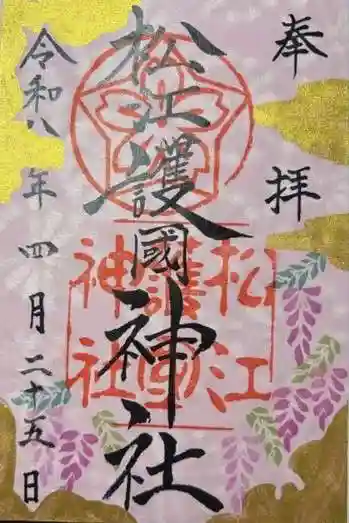 奉拝
松江護國神社
松江
護國
神社
令和八年四月二十五日